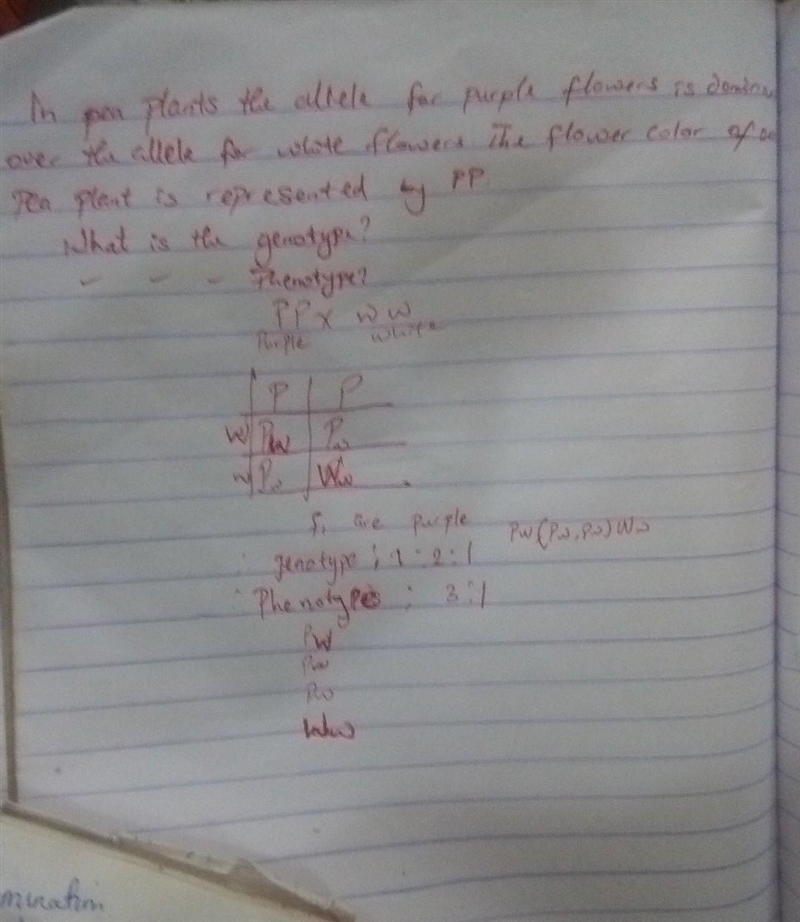 In pea plants the allele for purple flowers is domina
over the allele for white flowers The flower color of a
Pea plant is represented by PP.
What is the genotype?
- - - Phenotype?
PP x ww
Purple white
P P
w Pw Pw
w Pw Ww
F₁ are purple Pw(Pw,Pw)Ww
∴ genotype ; 1:2:1
∴ Phenotypes : 3:1
Pw
Pw
Pw
Ww